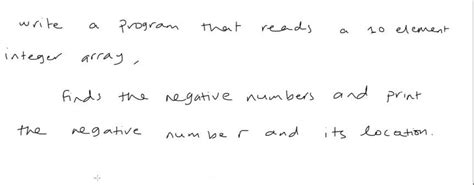 write a program that reads a 10 element
integer array,
finds the negative numbers and print
the negative number and its location.